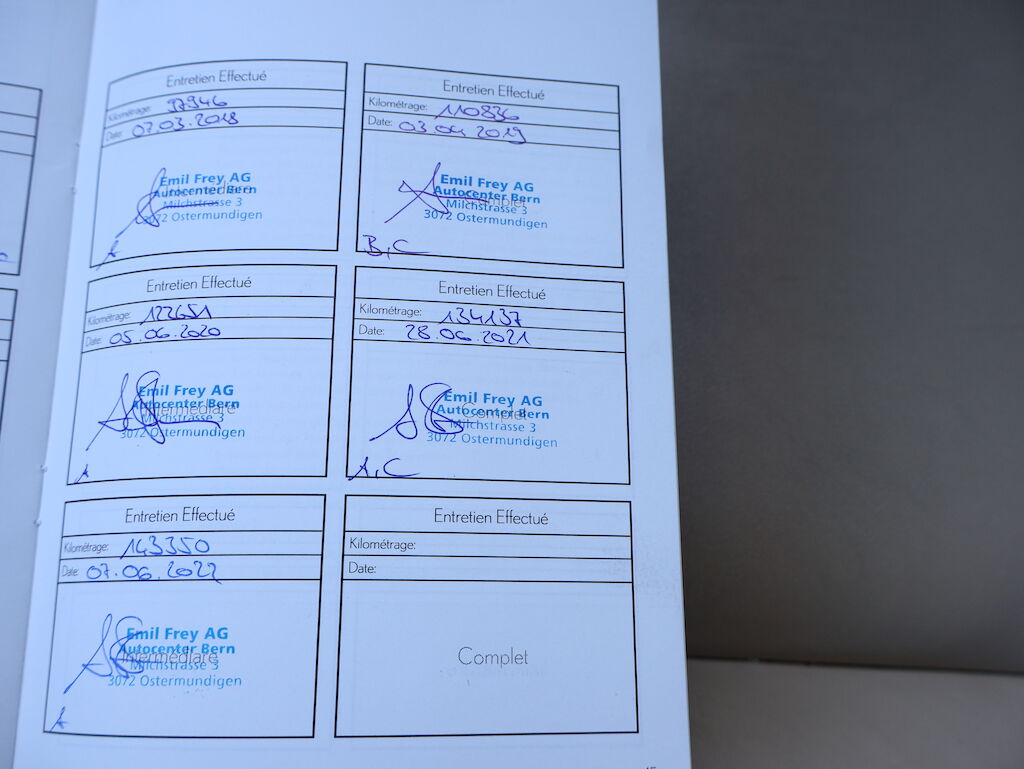 Entretien Effectué
Kilométrage: 97946
Date: 07.03.2018
Emil Frey AG
Autocenter Bern
Milchstrasse 3
3072 Ostermundigen
A
Entretien Effectué
Kilométrage: 110836
Date: 03.04.2019
Emil Frey AG
Autocenter Bern
Complet
Milchstrasse 3
3072 Ostermundigen
B, C
Entretien Effectué
Kilométrage: 122651
Date: 05.06.2020
Emil Frey AG
Autocenter Bern
Intermédiare
Milchstrasse 3
3072 Ostermundigen
A
Entretien Effectué
Kilométrage: 134137
Date: 28.06.2021
Emil Frey AG
Autocenter Bern
Complet
Milchstrasse 3
3072 Ostermundigen
A, C
Entretien Effectué
Kilométrage: 143350
Date: 07.06.2022
Emil Frey AG
Autocenter Bern
Intermédiare
Milchstrasse 3
3072 Ostermundigen
A
Entretien Effectué
Kilométrage:
Date:
Complet